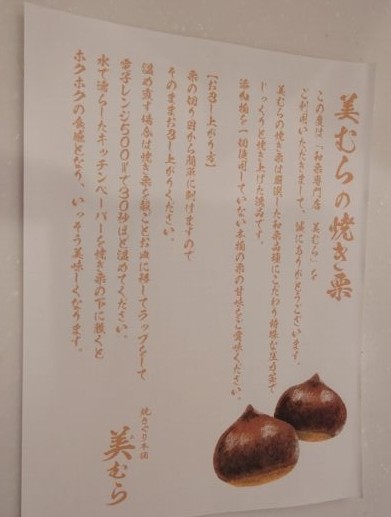 美むらの焼き栗
この度は「和栗専門店　美むら」を
ご利用いただきまして、誠にありがとうございます。
美むらの焼き栗は厳選した和栗品種にこだわり特殊な圧力釜で
じっくりと焼き上げた逸品です。
添加物を一切使用していない本物の栗の甘味をご賞味ください。
【お召し上がり方】
栗の切り目から簡単に剥けますので
そのままお召し上がりください。
温め直す場合は焼き栗を殻ごとお皿に移してラップをして
電子レンジ500Wで30秒ほど温めてください。
水で濡らしたキッチンペーパーを焼き栗の下に敷くと
ホクホクの食感となり、いっそう美味しくなります。
焼きぐり本舗
美むら